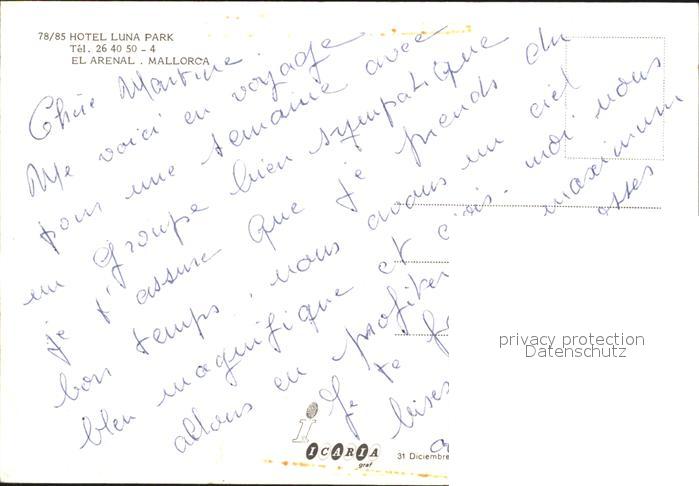 78/85 HOTEL LUNA PARK
Tél. 26 40 50 - 4
EL ARENAL . MALLORCA
Chère Martine.
Me voici en voyage
pour une semaine avec
un groupe bien sympatique
je t'assure que je prends du
bon temps, nous avons un ciel
bleu magnifique et crois-moi nous
allons en profiter maximum
Je te f
bises
osses
privacy protection
Datenschutz
ICARIA
graf
31 Diciembre